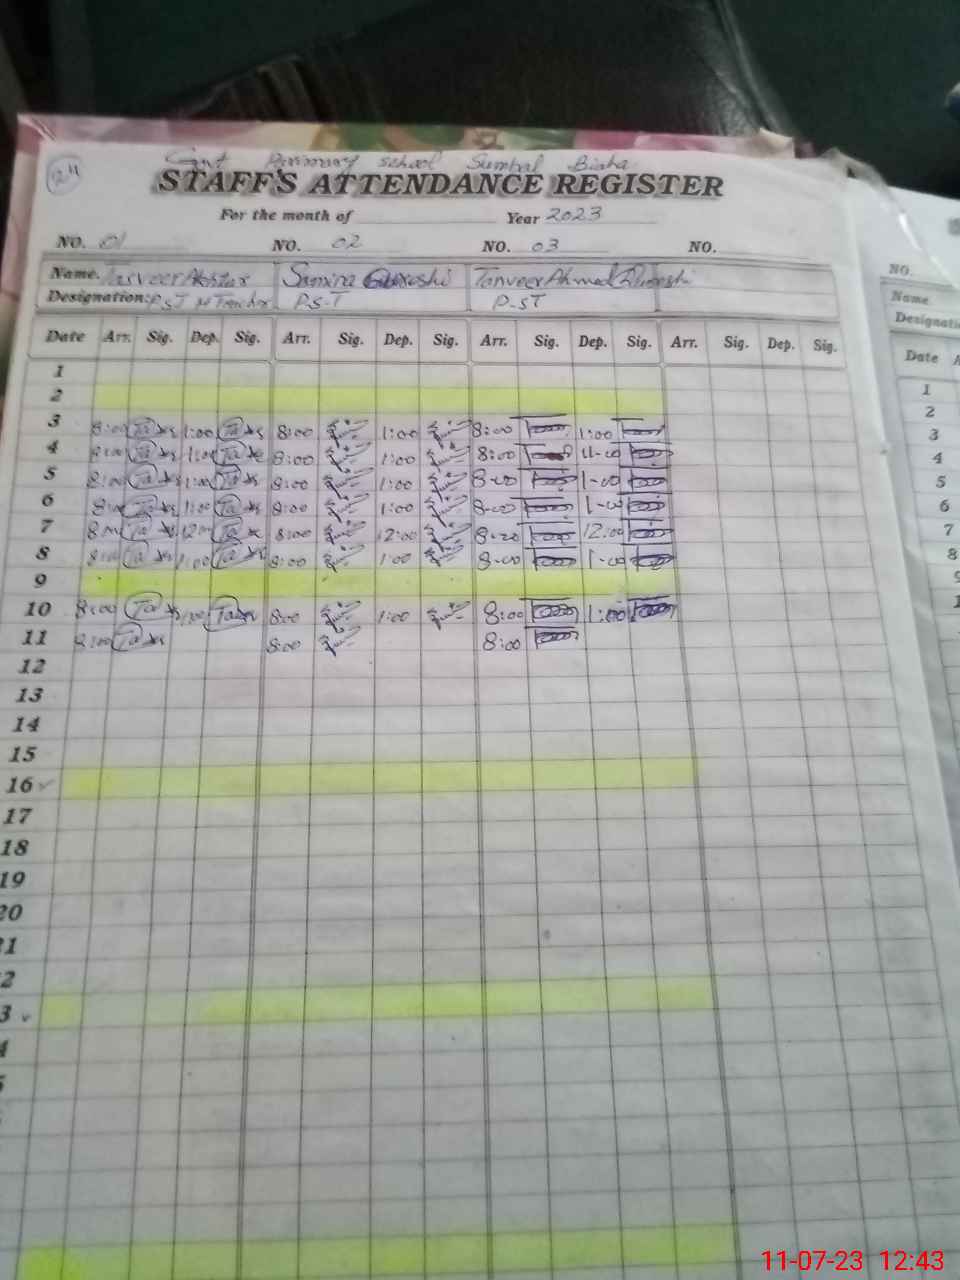 24
Govt Primary school Sumbal Bisha
STAFF'S ATTENDANCE REGISTER
For the month of Year 2023
NO. 01 NO. 02 NO. 03 NO.
Name. Tasveer Akhtar Samina Qureshi Tanveer Ahmed Qureshi
Designation: PST P.S-T P-ST
Date Arr. Sig. Dep. Sig. Arr. Sig. Dep. Sig. Arr. Sig. Dep. Sig. Arr. Sig. Dep. Sig.
1
2
3 8:00 1:00 8:00 1:00 8:00 1:00
4 8:00 1:00 8:00 1:00 8:00
5 8:00 1:00 8:00 1:00 8-00 1-00
6 8:00 1:00 8:00 1:00 8-00 1-00
7 8:00 12:00 8:00 12:00 12:00
8 8:00 1:00 8:00 1:00 8-00 1-00
9
10 8:00 1:00 8:00 1:00 8:00 1:00
11 8:00 8:00 8:00
12
13
14
15
16
17
18
19
20
21
2
3
4
5
NO.
Name
Designati
Date A
1
2
3
4
5
6
7
8
9
1
11-07-23 12:43